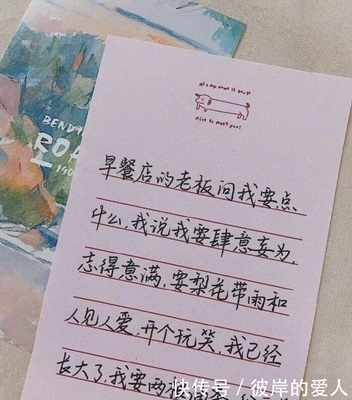 BEND
ROA
140
hi! my name is
nice to meet you!
早餐店的老板问我要点
什么,我说我要肆意妄为,
志得意满,要梨花带雨和
人见人爱,开个玩笑,我已经
长大了,我要两
快传号/彼岸的爱人